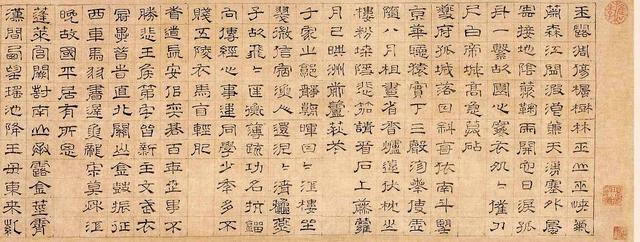 玉露凋傷楓樹林巫山巫峽氣
蕭森江間波浪兼天湧塞外風
雲接地陰叢菊兩開他日淚孤
舟一繫故園心寒衣處〻催刀
尺白帝城高急暮砧
夔府孤城落日斜每依南斗望
京華聽猿實下三聲淚奉使虛
隨八月槎畫省香爐違伏枕山
樓粉堞隱悲笳請看石上藤蘿
月已映洲前蘆荻花
千家山郭靜朝暉日〻江樓坐
翠微信宿漁人還汎〻清秋燕
子故飛〻匡衡薄疏功名抗劉
向傳經心事違同學少年多不
賤五陵衣馬自輕肥
聞道長安似弈棋百年世事不
勝悲王侯第宅皆新主文武衣
冠異昔時直北關山金鼓振征
西車馬羽書遲魚龍寂寞秋江
冷故國平居有所思
蓬萊宮闕對南山承露金莖霄
漢間西望瑤池降王母東來紫